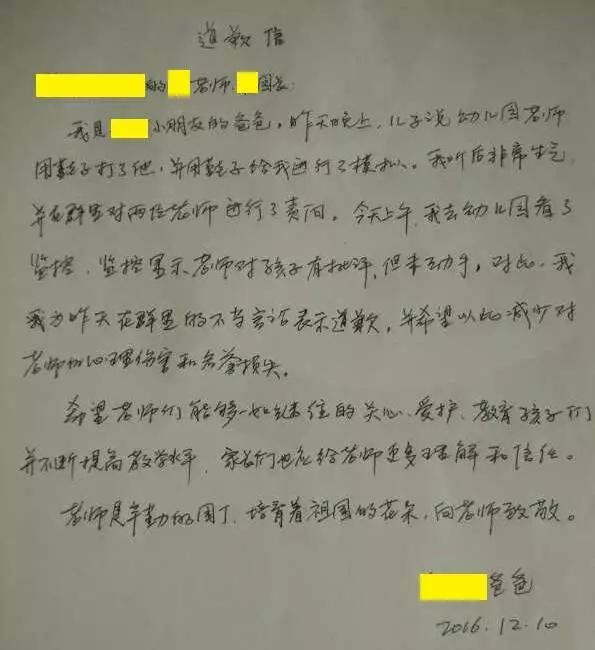 道歉信
的 老师、 园长:
我是 小朋友的爸爸。昨天晚上,儿子说幼儿园老师
用鞋子打了他,并用鞋子给我进行了模拟。我听后非常生气,
并在群里对两位老师进行了责问。今天上午,我去幼儿园看了
监控,监控显示老师对孩子有批评,但未动手。对此,我
我为昨天在群里的不当言论表示道歉,并希望以此减少对
老师的心理伤害和名誉损失。
希望老师们能够一如继往的关心、爱护、教育孩子们
并不断提高教学水平,家长们也应给老师更多理解和信任。
老师是辛勤的园丁,培育着祖国的花朵,向老师致敬。
爸爸
2016.12.10